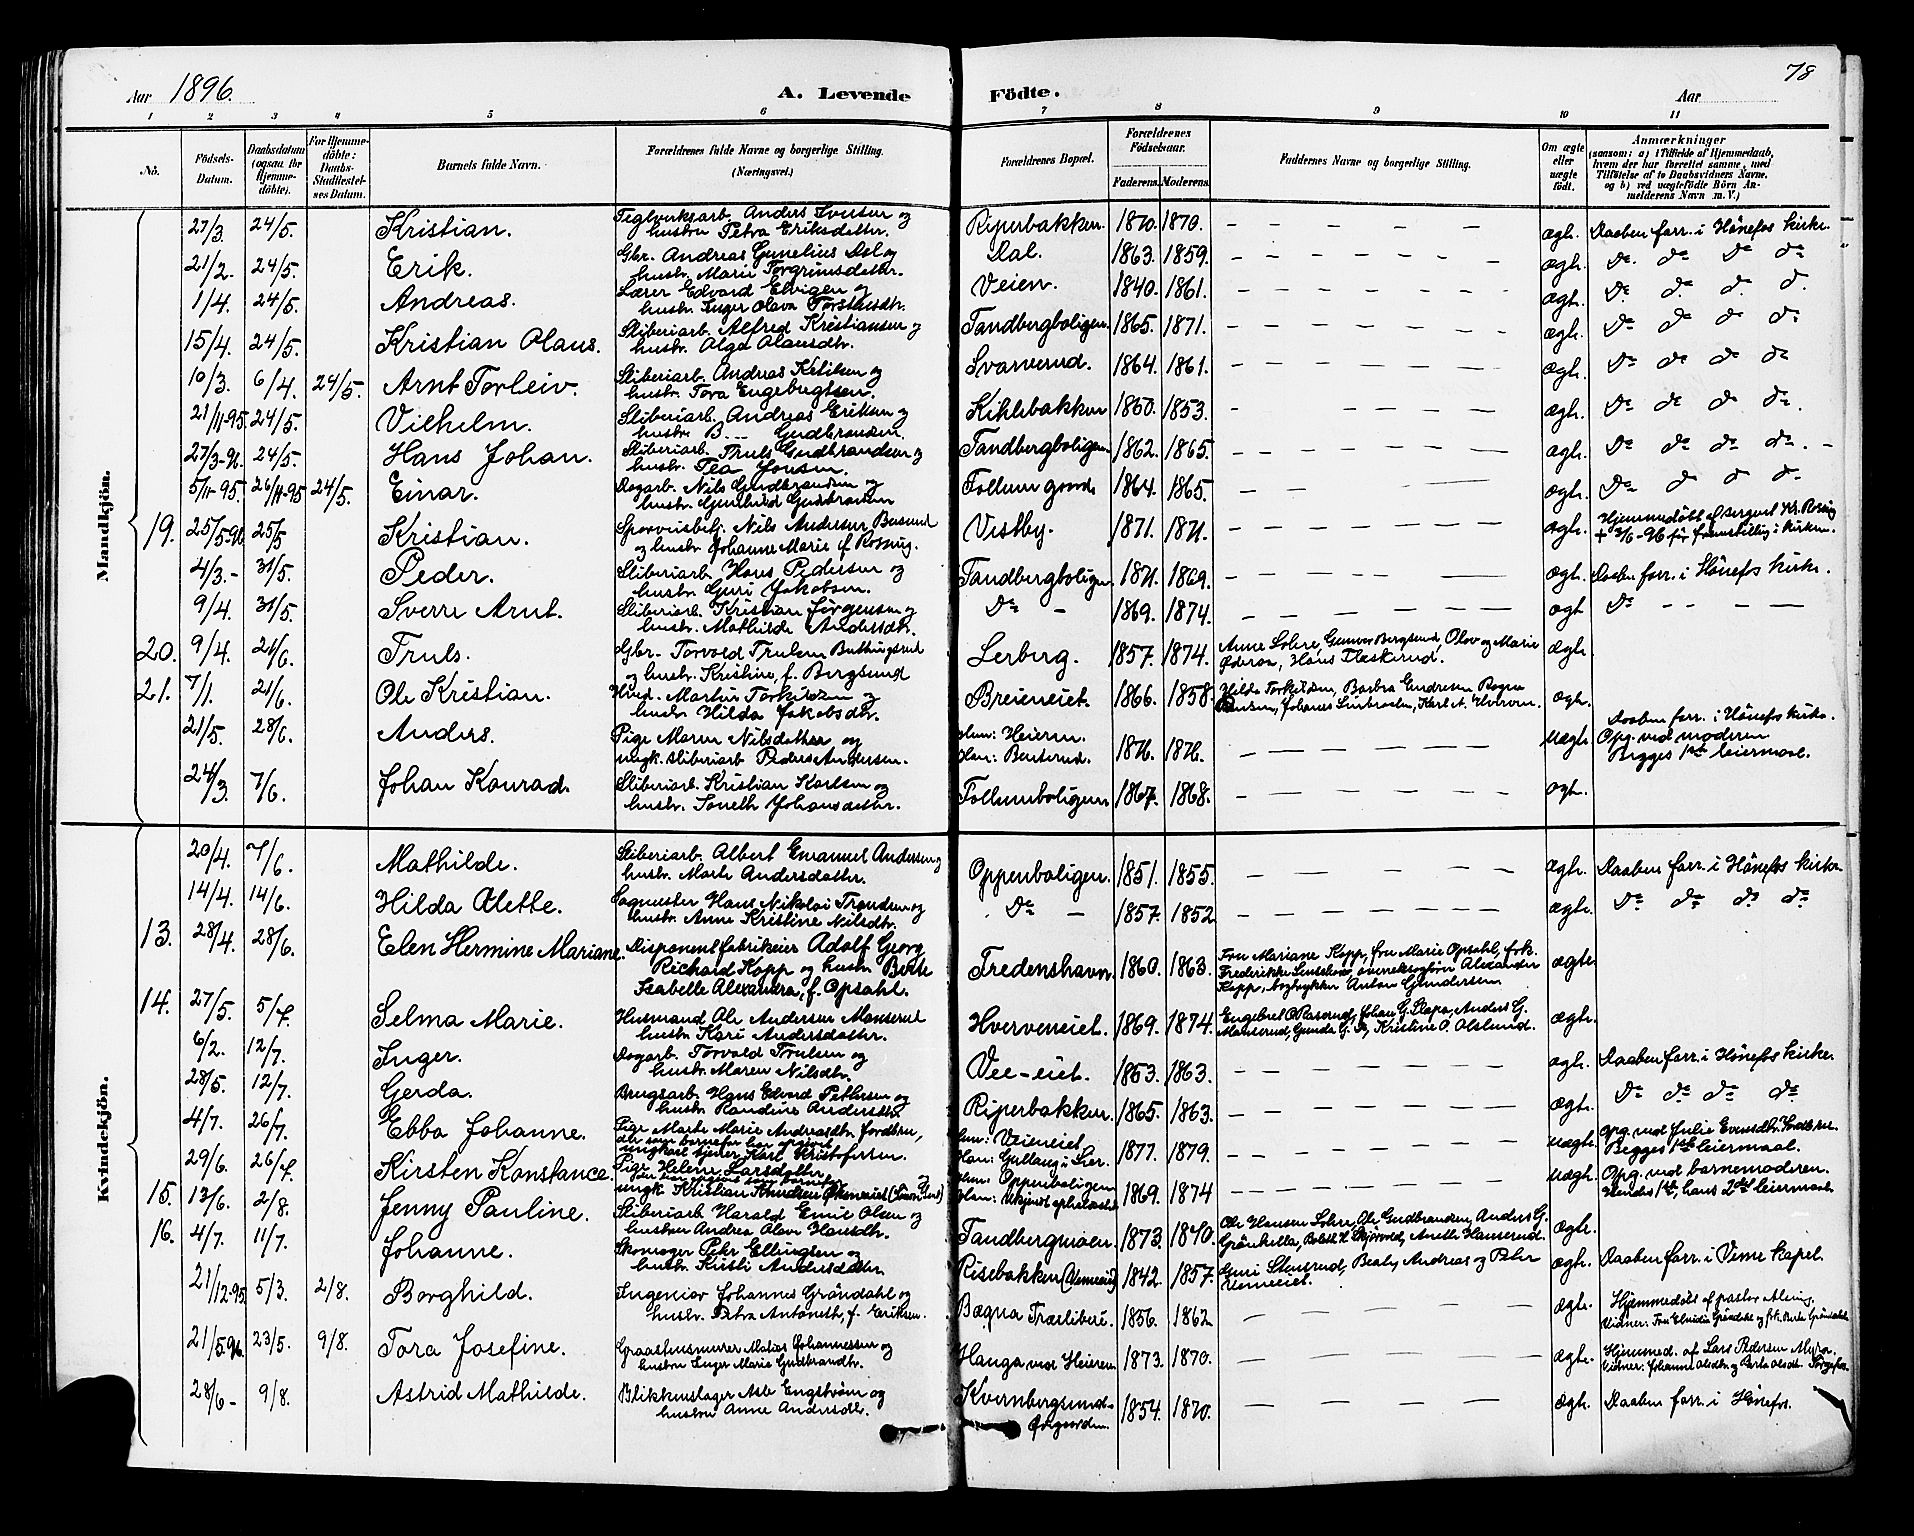 Aar 1896.
A. Levende Fødte.
Aar
78
1 2 3 4 5 6 7 8 9 10 11
No.
Fødsels-Datum.
Daabsdatum (ogsaa for Hjemmedøbte).
For Hjemmedøbte: Daabs-Stadfestelses Datum.
Barnets fulde Navn.
Forældrenes fulde Navne og borgerlige Stilling. (Næringsvei.)
Forældrenes Bopæl.
Forældrenes Fødselsaar.
Faderens. Moderens.
Faddernes Navne og borgerlige Stilling.
Om ægte eller uægte født.
Anmærkninger (saasom: a) i Tilfælde af Hjemmedaab, hvem der har forrettet samme, med Tilføielse af to Daabsvidners Navne, og b) ved uægtefødte Børn Anmelderens Navn m. V.)
Mandkjøn.
27/3. 24/5. Kristian. Teglverksarb. Anders Iversen og hustru Petra Eriksdatter. Riperbakken. 1870. 1870. — — — — — ægte. Daaben forr. i Hönefos kirke.
21/2. 24/5. Erik. Gbr. Andreas Gunelius Dal og hustr. Marie Torgrimsdatter. Dal. 1863. 1859. — — — — — — ægte. Do. do do do
1/4. 24/5. Andreas. Lærer Edvard Elvigen og hustr. Inger Olava Torstensdtr. Veien. 1840. 1861. — — — — — ægte. Do do do do.
15/4. 24/5. Kristian Olaus. Sliberiarb. Alfred Kristiansen og hustr. Olga Olausdtr. Tandbergboligen. 1865. 1871. — — — — — — ægte. Do do do do
10/3. 6/4. 24/5. Arnt Torleiv. Sliberiarb. Andreas Ketilsen og hustr. Tora Engebrigtsen. Svarverud. 1864. 1861. — — — — — ægte. Do do do do
21/11-95. 24/5. Vilhelm. Sliberiarb. Andreas Eriksen og hustru B--- Gudbrandsen. Kihlebakken 1860. 1853. — — — — — ægte. Do do do do.
27/3-96. 24/5. Hans Johan. Sliberiarb. Truls Gudbrandsen og hustr. Tea Jonsen. Tandbergboligen 1862. 1865. — — — — — ægte. Do do do do. —
5/11-95. 26/11-95 24/5. Einar. Dagarb. Nils Gudbrandsen og hustr. Gunhild Gudbrandsen Follum gaard. 1864. 1865. — — — — ægte. Do do do do.
19. 25/5-96 25/5 Kristian. Sporveisbetj. Nils Andersen Busund og hustr. Johanne Marie f. Rossing. Vestby. 1871. 1871. — — — — — ægte. Hjemmedöbt af sergent Kr. Rossing + 3/6-96 för fremstilling i kirken.
4/3.- 31/5. Peder. Sliberiarb. Hans Pedersen og hustr. Guri Jakobsen. Tandbergboligen. 1871. 1869. — — — — ægte. Daaben forr. i Hönefos kirke.
9/4. 31/5. Sverre Arnt. Sliberiarb. Kristian Jörgensen og hustr. Mathilde Andersdtr. Do — 1869. 1874. — — — — — — ægt. Do — — — —
20. 9/4. 21/6. Truls. Gbr. Torvald Trulsen Buttingsrud og hustr. Kristine, f. Bergsund Lerberg. 1857. 1874. Anne Lohre, Gunvor Bergsund, Olav og Marie Öderaa, Hans Flæskerud. ægte.
21. 7/1. 21/6. Ole Kristian. Husmd. Martin Torkildsen og hustr. Hilda Jakobsdtr. Breieneiet. 1866. 1858. Hilda Torkildsen, Barbra Endresen Bogna Hansen, Johanes Lurbraaten, Karl A. Hverven. ægte.
21/5. 28/6. Anders. Pige Maren Nilsdatter og ungk. Sliberiarb Peder Andersen. Hun: Heieren. Han: Benterud. 1876. 1876. — — — — — uægte. Daaben forr. i Hönefos kirke. Opg. ved moderen Begges 1ste leiermaal.
24/3. 7/6. Johan Konrad. Sliberiarb. Kristian Karlsen og hustr.Ioneth Johansdatter. Follumboligen 1867. 1868. — — — — — — ægte.
Kvindekjön.
20/4. 7/6. Mathilde. Sliberiarb. Albert Emanuel Andersen og hustr. Marte Andersdatter. Oppenboligen. 1851. 1855. — — — — — ægte. Daaben forr. i Hönefos kirke.
14/4. 14/6. Hilda Alette. Sagmester Hans Nikolai Trondsen og hustr. Anne Kristine Nilsdtr. Do — 1857. 1852 — — — — — — ægte. Do do do do
13. 28/4. 28/6. Elen Hermine Mariane. Disponent fabrikeier Adolf Georg Richard Kopp og hustru Berte Isabelle Alexandra, f. Opsahl. Fredenshavn 1860. 1863. Fru Mariane Kopp, fru Marie Opsahl, frk. Frederikke overretssagförer Alexander Kopp, bogtrykker Anton Gundersen ægte
14. 27/5. 5/7. Selma Marie. Husmand Ole Andersen Monserud hustr. Kari Andersdatter. Hverveneiet. 1869. 1874. Engebret O Raserud, Johan G. Anders G. Monserud, Gunda G. Kristine O. Olslund. ægte.
6/2. 12/7. Inger. Dagarb. Torvald Trulsen og hustr. Maren Nilsdtr. Vee-eiet. 1853. 1863. — — — — — ægte. Daaben forr. i Hönefos kirke.
28/5. 12/7. Gerda. Brugsarb. Hans Edvard Pettersen og hustr. Randine Andersdtr. Riperbakken 1865. 1863. — — — — — — ægte. Do do do do
4/7. 26/7. Ebba Johanne. Pige Marte Marie Andreasdtr. Jordbru, der som barnefar har opgivet ungkarl tjener Karl Kristofersen. Hun: Veieneiet. Han: Gullaug i Lier. 1877. 1879. — — — — — uægte. Opg. ved Julie Evensdtr. Jordbru. Begges 1ste leiermaal.
29/6. 26/7. Kirsten Konstance. Pige Helene Larsdatter ungk. Kristian Knudsen Hun: Oppenboligen 1869. 1874 — — — — — — uægte. Opg. ved barnemoderen. Hendes 1ste, hans 2det leiermaal.
15. 13/6. 2/8. Jenny Pauline. Sliberiarb. Harald Emil Olsen og hustru Andrea Olava Hansdtr. Tandbergmoen 1873. 1870. Ole Hansen Lohre, Ole Gudbrandsen, Anders G. Grönhella, Anethe Hanserud. ægte.
16. 4/7. 11/7. Johanne. Skomager Petter Ellingsen og hustr. Kirsti Andersdatter Risebakken (Vemeeiet) 1842. 1857. Guri Stensrud, Beate, Andreas og Peter Vemeeiet. ægte. Daaben forr. i Veme kapel.
21/12-95. 5/3. 2/8. Borghild. Ingeniør Johannes Gröndahl og hustr. Petra Antoneth, f. Eriksen. Bægna Træsliberi. 1856. 1862 — — — — — ægte. Hjemmedöbt af pastor Vidner:
21/5-96. 23/5. 9/8. Tora Josefine. Graastensmurer Matias Johannessen og hustru Inger Marie Gudbrandtr. Hauga ved Heieren 1873. 1870. — — — — — ægte. Hjemmed. af Lars Pedersen Vidner: Johanne Olsdtr. og Berte Olsdtr.
28/6- 9/8. Astrid Mathilde. Blikkenslager Asle Engström og hustru Anne Andersdtr. Kvernbergsund- Övregaarden. 1854. 1870. — — — — ægte. Daaben forr. i Hönefos.